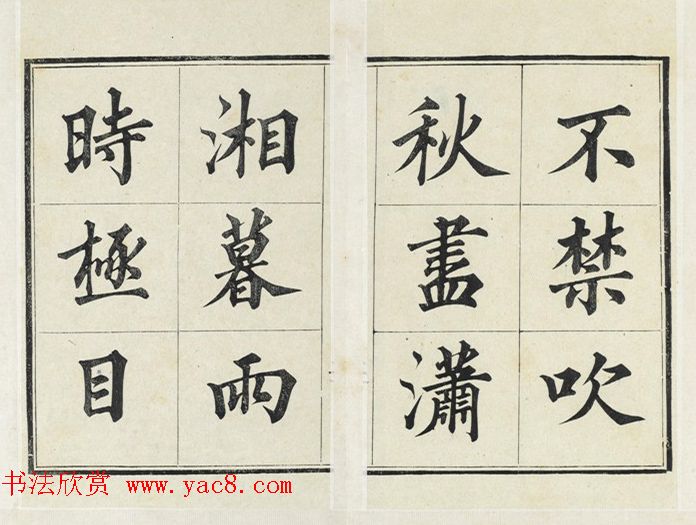 不禁吹
秋盡瀟
湘暮雨
時極目
书法欣赏 www.yac8.com